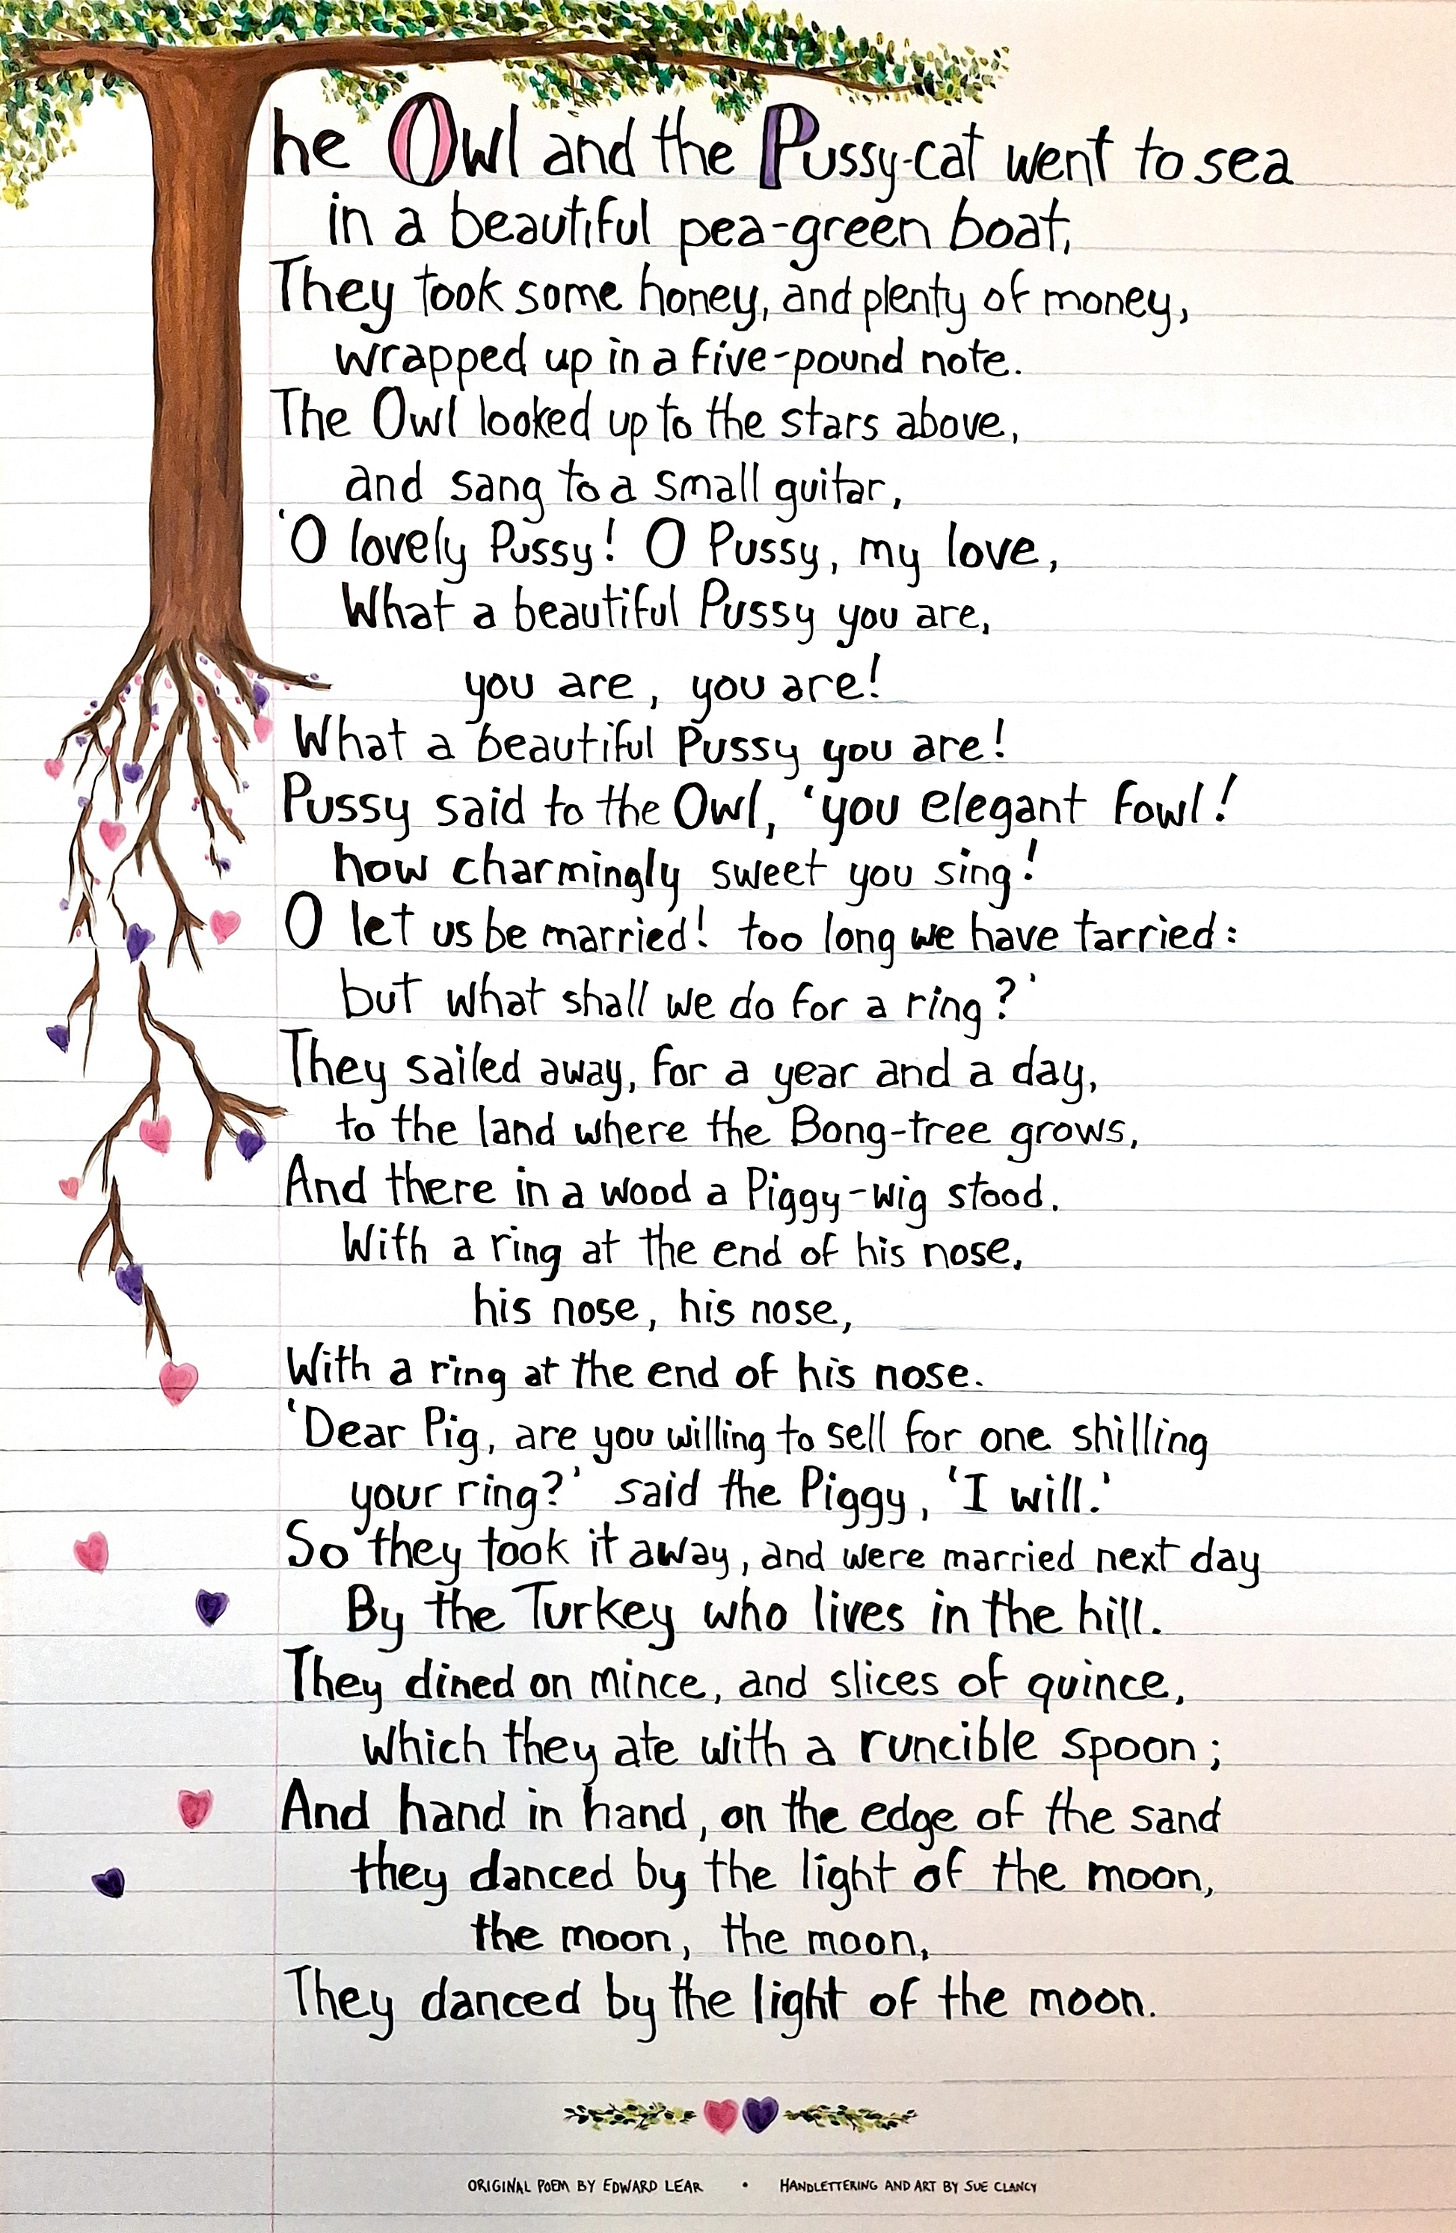 The Owl and the Pussy-cat went to sea
in a beautiful pea-green boat,
They took some honey, and plenty of money,
wrapped up in a five-pound note.
The Owl looked up to the stars above,
and sang to a small guitar,
'O lovely Pussy! O Pussy, my love,
What a beautiful Pussy you are,
you are, you are!
What a beautiful Pussy you are!
Pussy said to the Owl, 'you elegant fowl!
how charmingly sweet you sing!
O let us be married! too long we have tarried:
but what shall we do for a ring?'
They sailed away, for a year and a day,
to the land where the Bong-tree grows,
And there in a wood a Piggy-wig stood.
With a ring at the end of his nose,
his nose, his nose,
With a ring at the end of his nose.
'Dear Pig, are you willing to sell for one shilling
your ring?' said the Piggy, 'I will.'
So they took it away, and were married next day
By the Turkey who lives in the hill.
They dined on mince, and slices of quince,
which they ate with a runcible spoon;
And hand in hand, on the edge of the sand
they danced by the light of the moon,
the moon, the moon,
They danced by the light of the moon.
ORIGINAL POEM BY EDWARD LEAR • HANDLETTERING AND ART BY SUE CLANCY